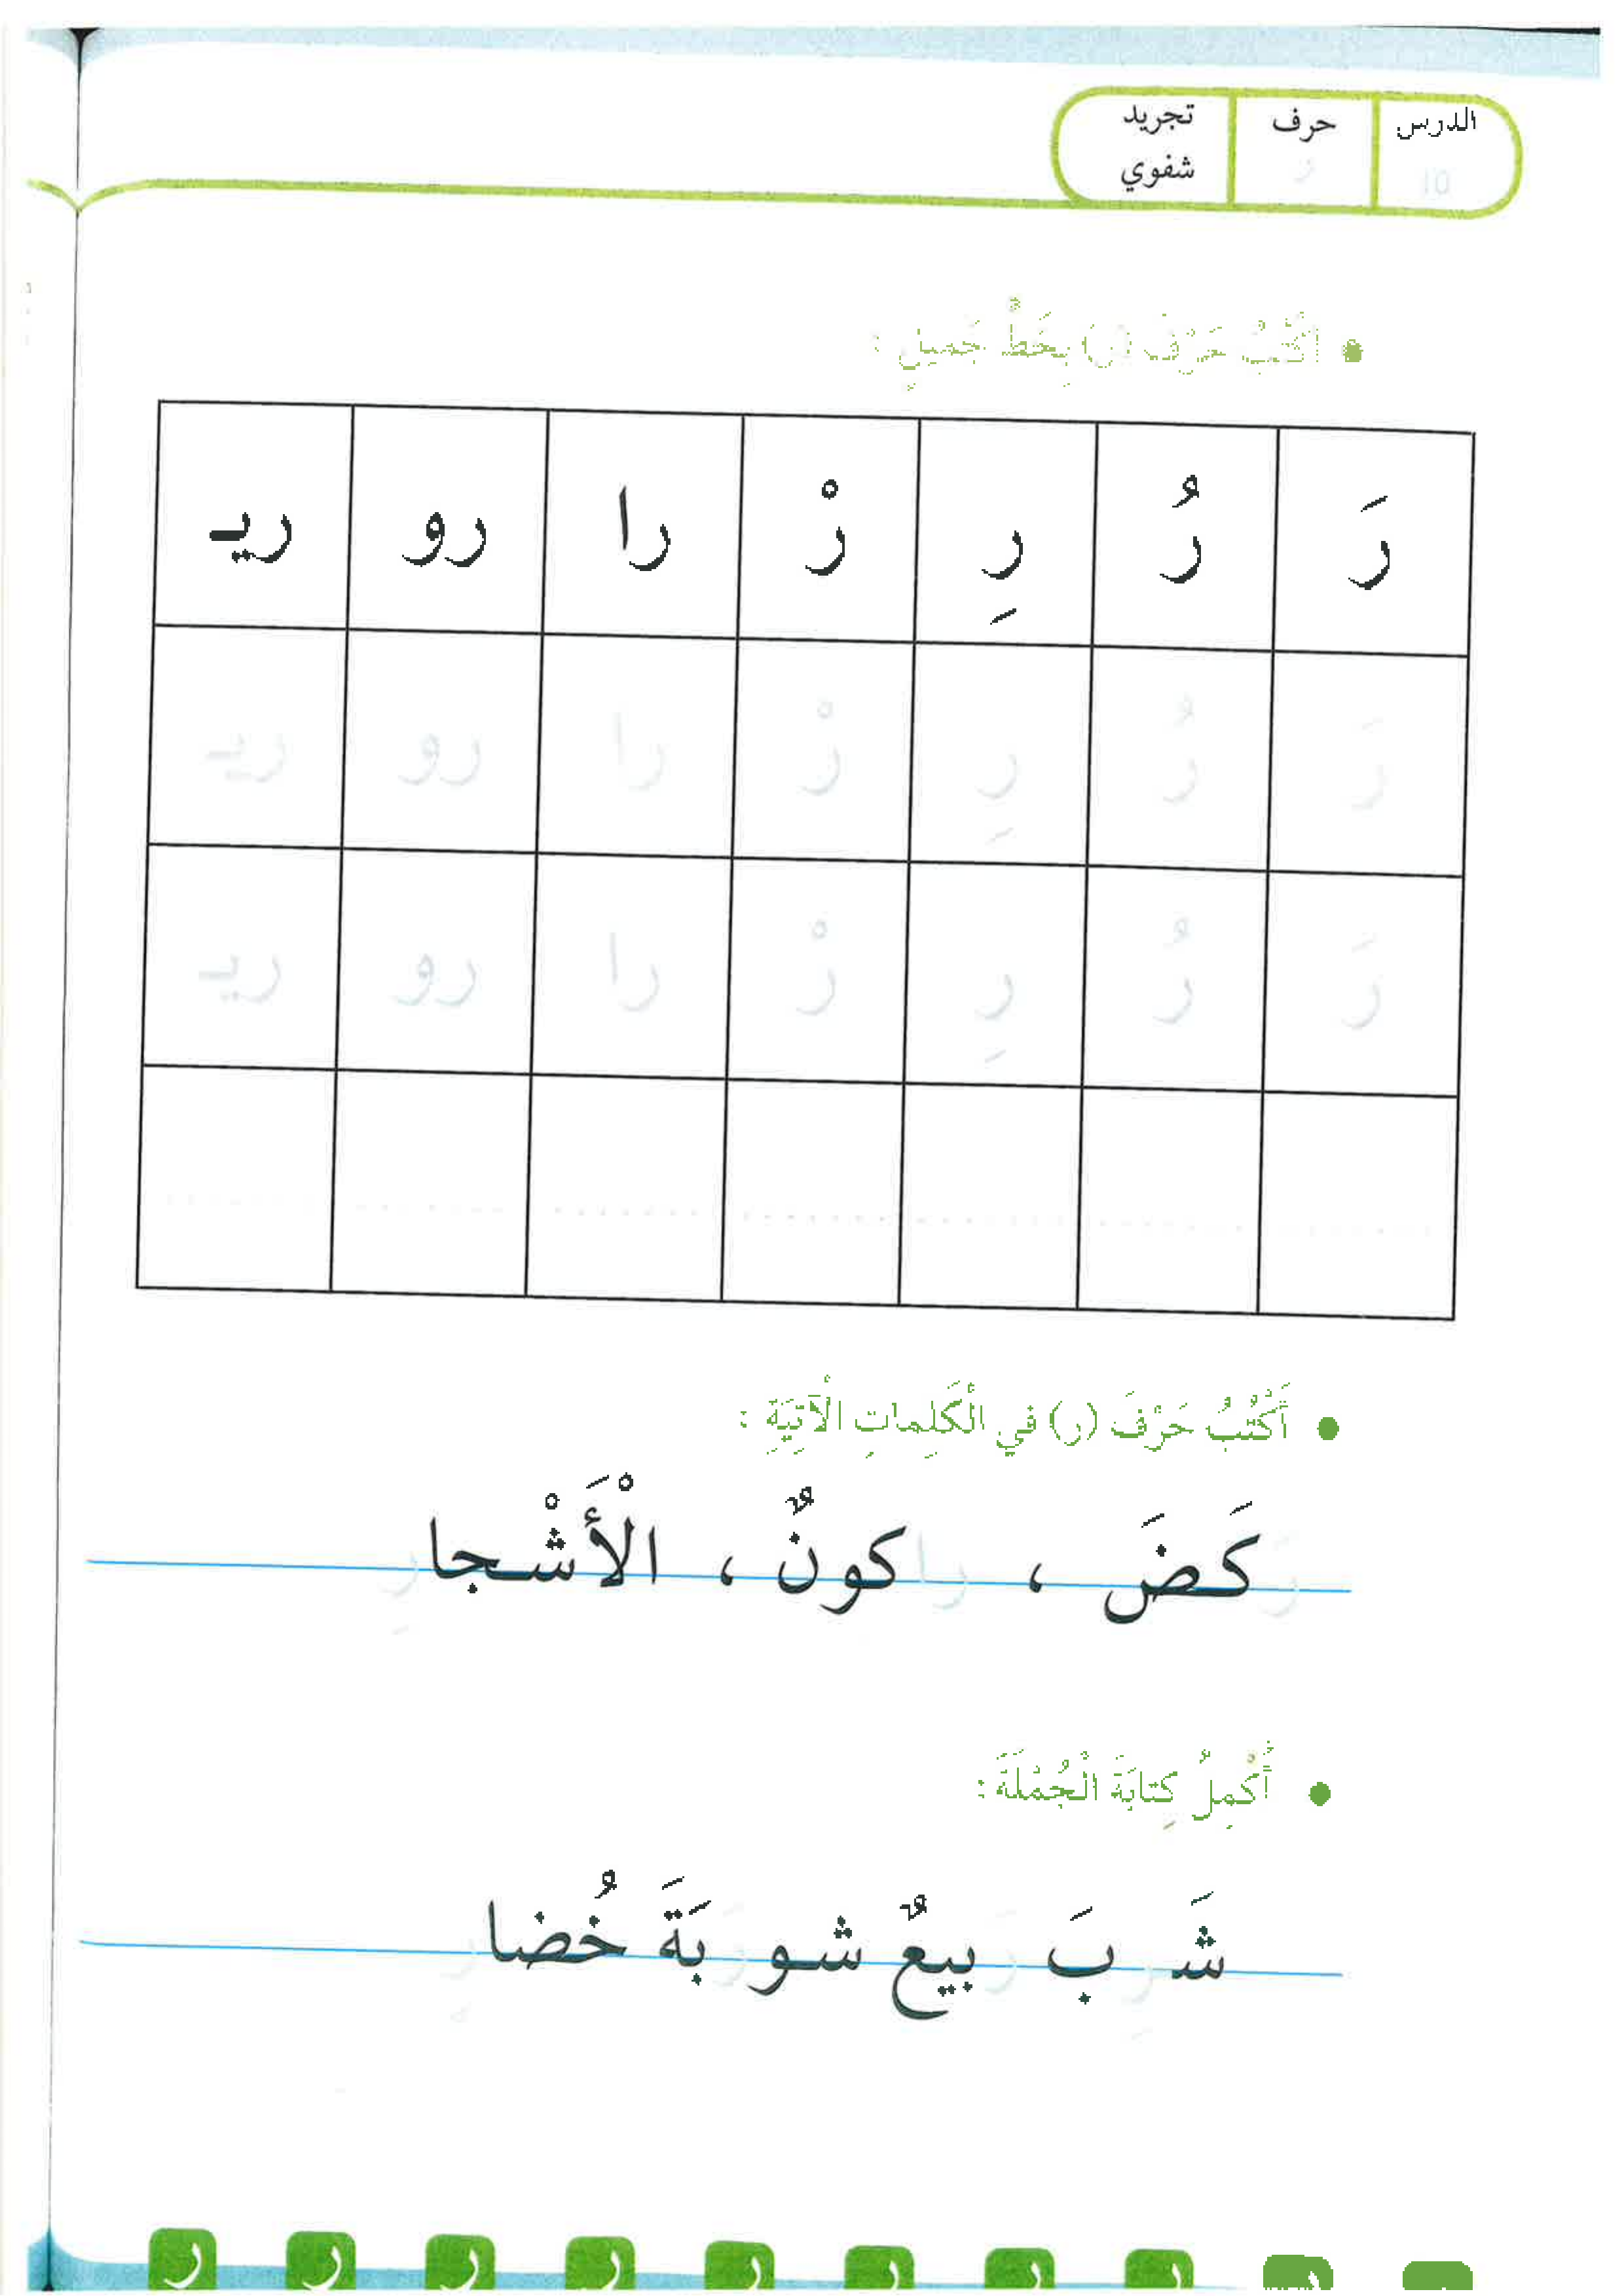 الدرس حرف تجريد
10 ر شفوي
• أَكْتُبُ حَرْفَ (ر) بِخَطٍّ جَميلٍ :
رَ رُ رِ رْ را رو ريـ
رَ رُ رِ رْ را رو ريـ
رَ رُ رِ رْ را رو ريـ
• أَكْتُبُ حَرْفَ (ر) في الْكَلِماتِ الْآتِيَةِ :
رَكَضَ ، راكونٌ ، الْأَشْجارِ
• أُكْمِلُ كِتابَةَ الْجُمْلَةَ :
شَرِبَ رَبيعٌ شورَبَةَ خُضارٍ
ر ر ر ر ر ر ر ر